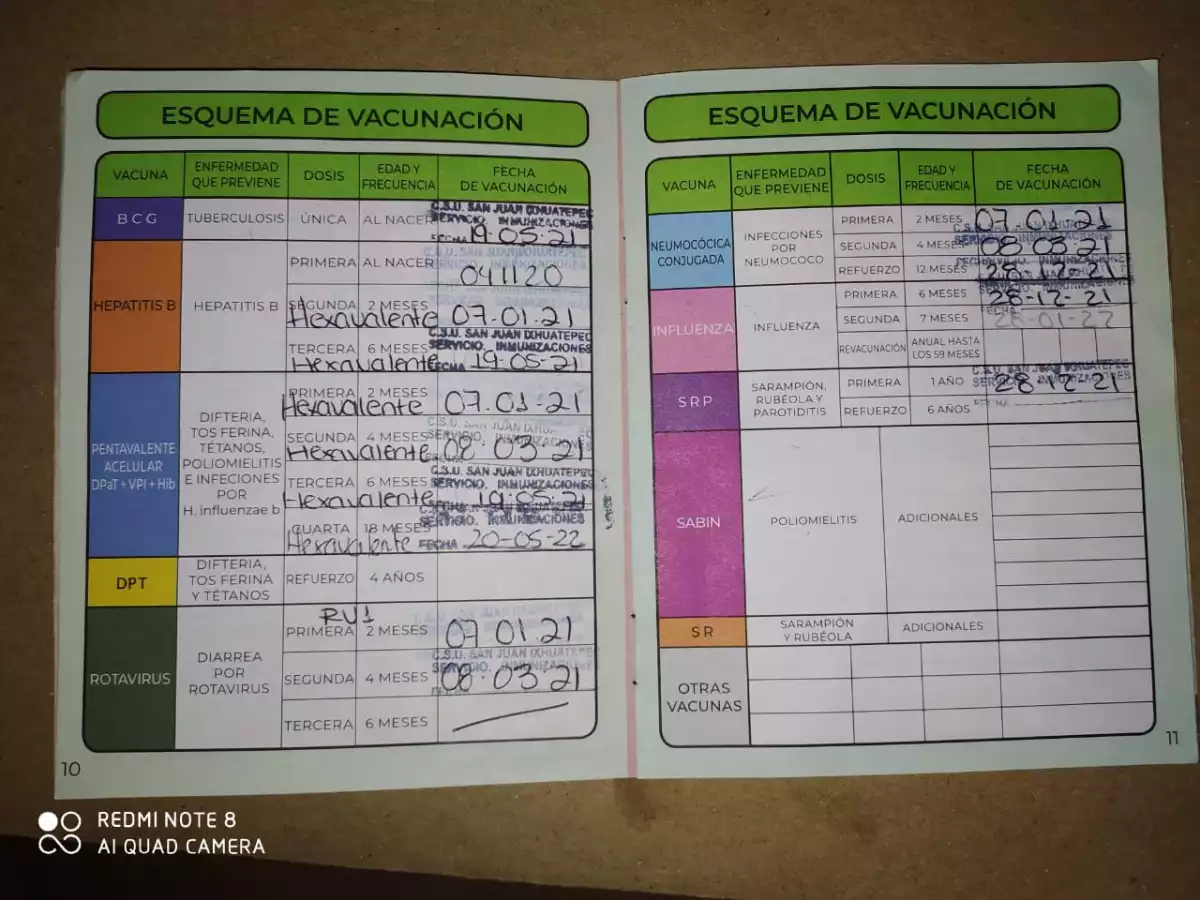 ESQUEMA DE VACUNACIÓN
VACUNA
ENFERMEDAD
QUE PREVIENE
DOSIS
EDAD Y
FRECUENCIA
FECHA
DE VACUNACIÓN
B C G
TUBERCULOSIS
ÚNICA
AL NACER
C.S.U. SAN JUAN IXHUATEPEC
SERVICIO. INMUNIZACIONES
FECHA 19-05-21
HEPATITIS B
HEPATITIS B
PRIMERA AL NACER
041120
SEGUNDA 2 MESES
Hexavalente 07.01.21
TERCERA 6 MESES
C.S.U. SAN JUAN IXHUATEPEC
SERVICIO. INMUNIZACIONES
Hexavalente FECHA 19-05-21
PENTAVALENTE
ACELULAR
DPaT + VPI + Hib
DIFTERIA,
TOS FERINA,
TÉTANOS,
POLIOMIELITIS
E INFECIONES
POR
H. influenzae b
PRIMERA 2 MESES
Hexavalente 07.01-21
SEGUNDA 4 MESES
Hexavalente 08 03-21
TERCERA 6 MESES
C.S.U. SAN JUAN IXHUATEPEC
SERVICIO. INMUNIZACIONES
Hexavalente 19-05-21
CUARTA 18 MESES
SERVICIO. INMUNIZACIONES
Hexavalente FECHA 20-05-22
DPT
DIFTERIA,
TOS FERINA
Y TÉTANOS
REFUERZO
4 AÑOS
ROTAVIRUS
DIARREA
POR
ROTAVIRUS
RV1
PRIMERA 2 MESES 07 01 21
C.S.U. SAN JUAN IXHUATEPEC
SERVICIO. INMUNIZACIONES
SEGUNDA 4 MESES 08-03-21
TERCERA 6 MESES
10
ESQUEMA DE VACUNACIÓN
VACUNA
ENFERMEDAD
QUE PREVIENE
DOSIS
EDAD Y
FRECUENCIA
FECHA
DE VACUNACIÓN
NEUMOCÓCICA
CONJUGADA
INFECCIONES
POR
NEUMOCOCO
PRIMERA 2 MESES 07.01.21
SEGUNDA 4 MESES 08 03-21
REFUERZO 12 MESES 28-12-21
INFLUENZA
INFLUENZA
PRIMERA 6 MESES 28-12-21
SEGUNDA 7 MESES 26-01-22
REVACUNACIÓN
ANUAL HASTA
LOS 59 MESES
S R P
SARAMPIÓN,
RUBÉOLA Y
PAROTIDITIS
PRIMERA 1 AÑO 28-12-21
REFUERZO 6 AÑOS
SABIN
POLIOMIELITIS
ADICIONALES
S R
SARAMPIÓN
Y RUBÉOLA
ADICIONALES
OTRAS
VACUNAS
11
REDMI NOTE 8
AI QUAD CAMERA